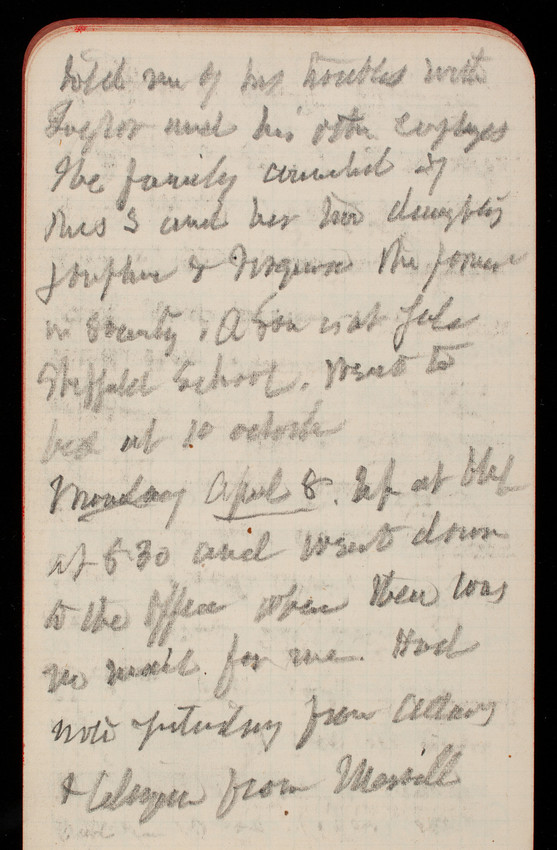 told me of his troubles with
Taylor and his other employes
The family consisted of
Mrs S and her two daughters
Josephine & the former
in Society. A Son is at Yale
Sheffield School. Went to
bed at 10 oclock
Monday April 8. Up at
at 6 30 and went down
to the Office when there was
no mail for me. Had
note yesterday from
& telegram from Merrill